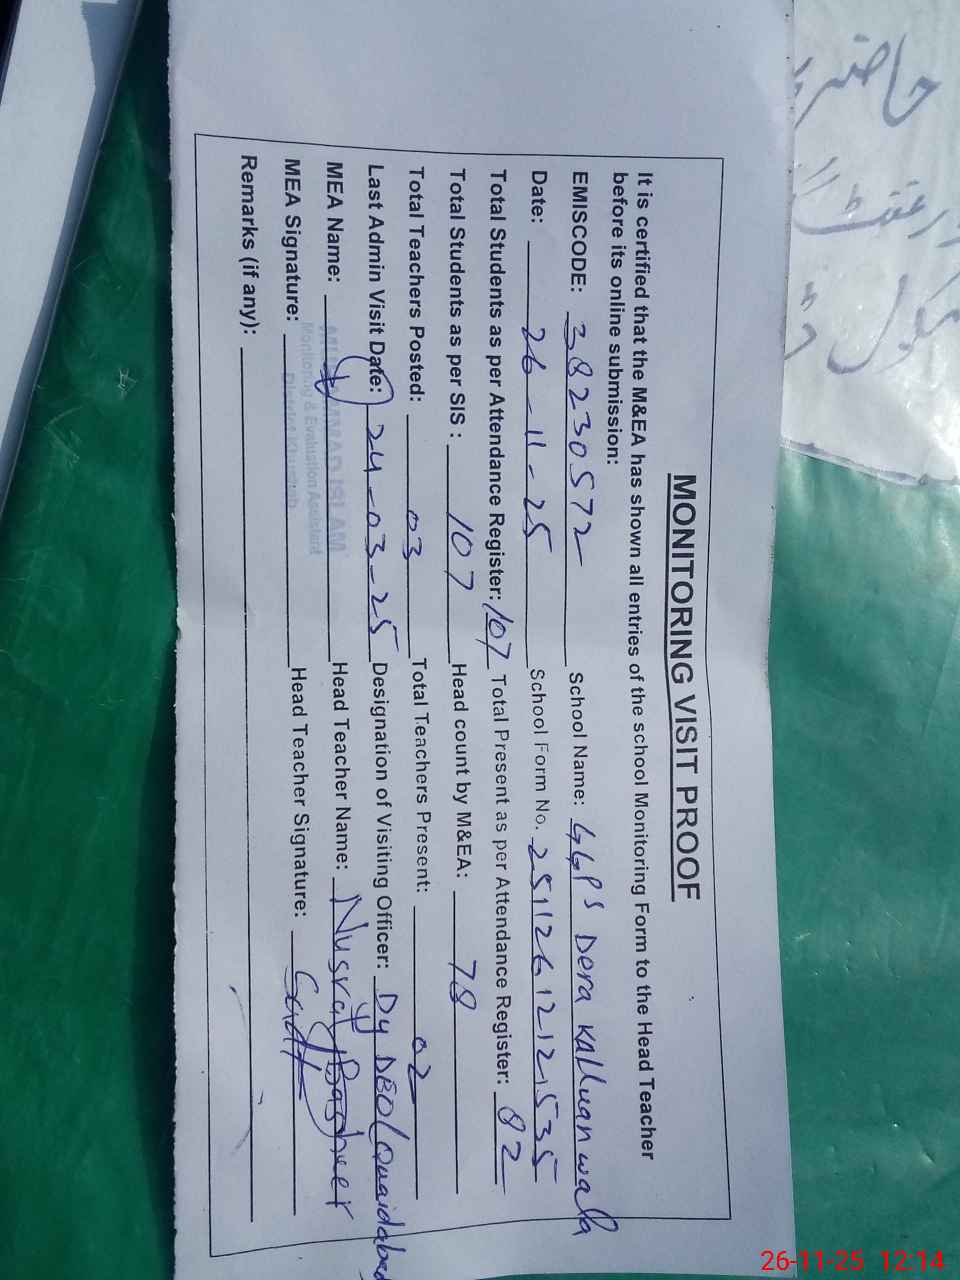 MONITORING VISIT PROOF
It is certified that the M&EA has shown all entries of the school Monitoring Form to the Head Teacher
before its online submission:
EMISCODE: 38230572 School Name: GGPS Dera Kalluanwala
Date: 26-11-25 School Form No. 25112612121535
Total Students as per Attendance Register: 107 Total Present as per Attendance Register: 82
Total Students as per SIS: 107 Head count by M&EA: 78
Total Teachers Posted: 03 Total Teachers Present: 02
Last Admin Visit Date: 24-03-25 Designation of Visiting Officer: Dy DEO (Quaidabad
MEA Name: MUHAMMAD ISLAM Head Teacher Name: Nusrat Basheer
Monitoring & Evaluation Assistant
District Khushab
MEA Signature: Head Teacher Signature:
Remarks (if any):
26-11-25 12:14